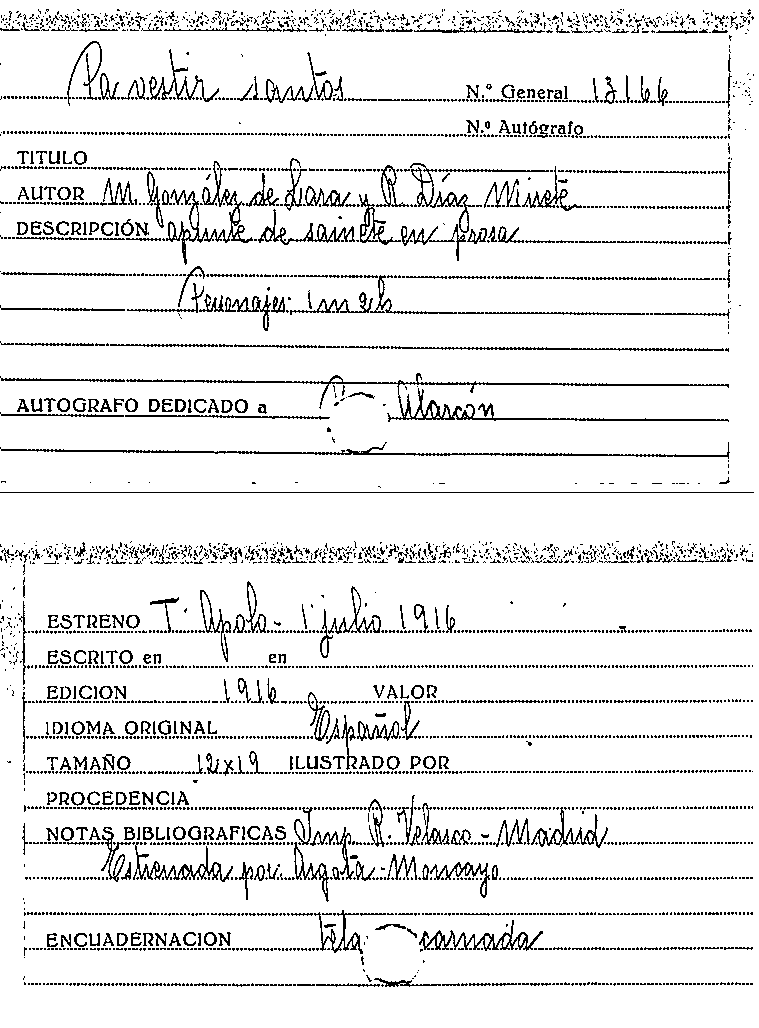 Pa vestir santos
N.º General 13166
N.º Autógrafo
TITULO
AUTOR M. González de Lara y R. Díaz Mirete
DESCRIPCIÓN apunte de sainete en prosa
Personajes: 1 m 2 h
AUTOGRAFO DEDICADO a Alarcón
ESTRENO T. Apolo - 1 julio 1916
ESCRITO en en
EDICION 1916 VALOR
IDIOMA ORIGINAL Español
TAMAÑO 12x19 ILUSTRADO POR
PROCEDENCIA
NOTAS BIBLIOGRAFICAS Imp. R. Velasco - Madrid
Estrenada por: Argota - Moncayo
ENCUADERNACION tela carnada